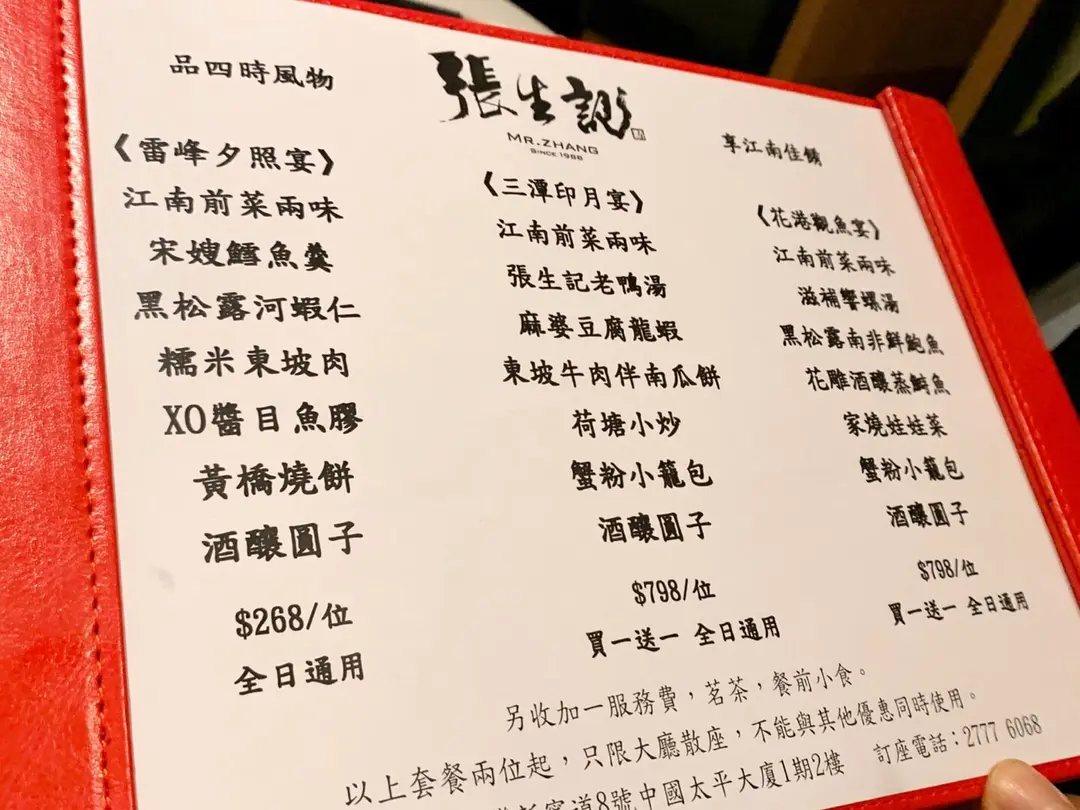 品四時風物
張生記
MR.ZHANG
SINCE 1988
享江南佳餚
《雷峰夕照宴》
江南前菜兩味
宋嫂鱈魚羹
黑松露河蝦仁
糯米東坡肉
XO醬目魚膠
黃橋燒餅
酒釀圓子
$268/位
全日通用
《三潭印月宴》
江南前菜兩味
張生記老鴨湯
麻婆豆腐龍蝦
東坡牛肉伴南瓜餅
荷塘小炒
蟹粉小籠包
酒釀圓子
$798/位
買一送一 全日通用
《花港觀魚宴》
江南前菜兩味
滋補響螺湯
黑松露南非鮮鮑魚
花雕酒釀蒸鰣魚
家燒娃娃菜
蟹粉小籠包
酒釀圓子
$798/位
買一送一 全日通用
另收加一服務費，茗茶，餐前小食。
以上套餐兩位起，只限大廳散座，不能與其他優惠同時使用。
道8號中國太平大廈1期2樓 訂座電話：2777 6068